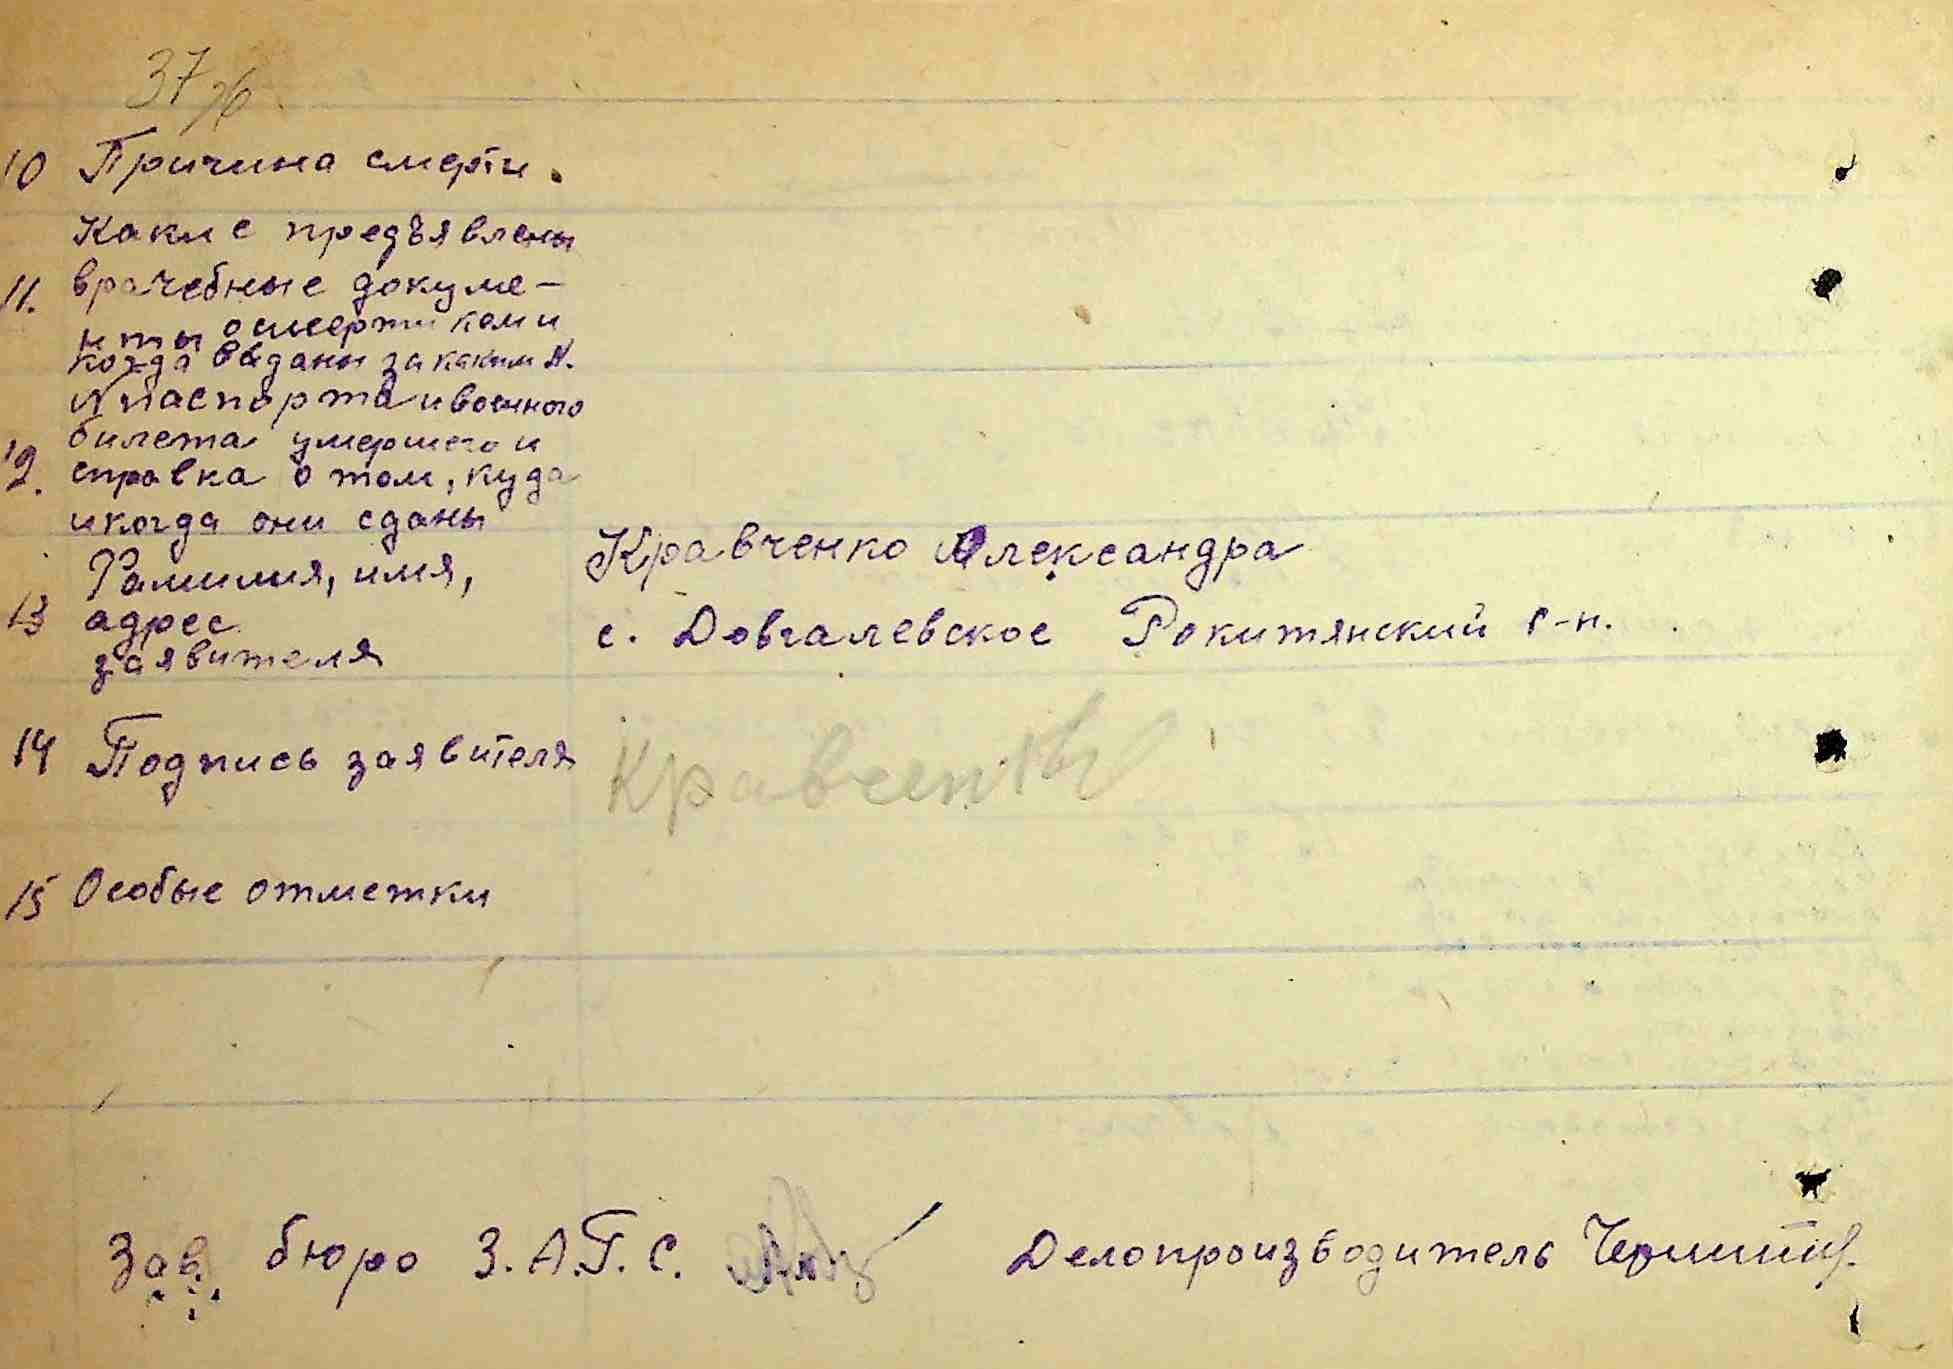 37
10 Причина смерти.
Какие предъявлены
11. врачебные докуме-
нты о смерти кем и
когда выданы за каким N.
N паспорта и военного
билета умершего и
12. справка о том, куда
и когда они сданы
Фамилия, имя,
13 адрес
заявителя
Кравченко Александра
с. Довгалевское Рокитянский р-н.
14 Подпись заявителя
15 Особые отметки
Зав. бюро З.А.Г.С. Делопроизводитель